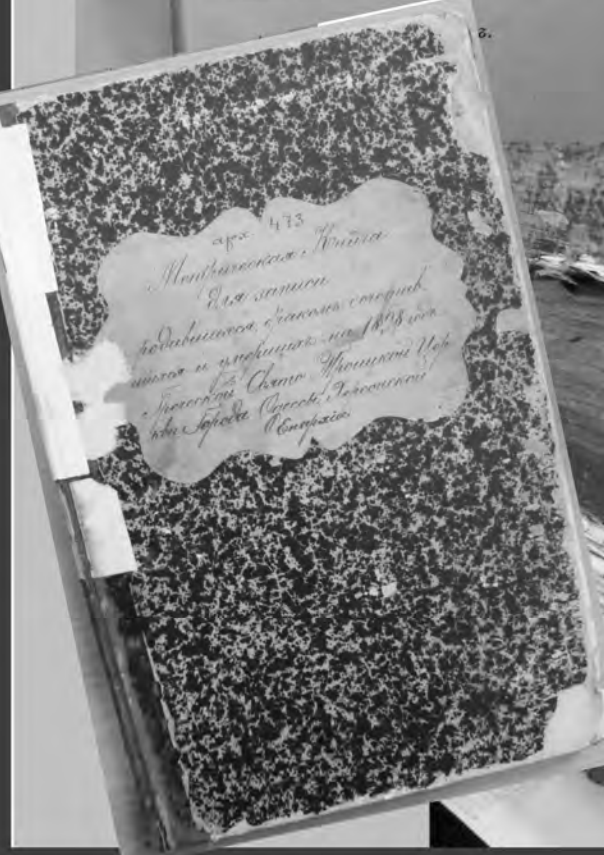 б.
арх. 473
Метрическая Книга
для записи
родившихся, бракомъ сочетав
шихся и умершихъ на 1898 годъ
Греческой Свято Троицкой Цер
кви Города Одессы, Херсонской
Епархіи